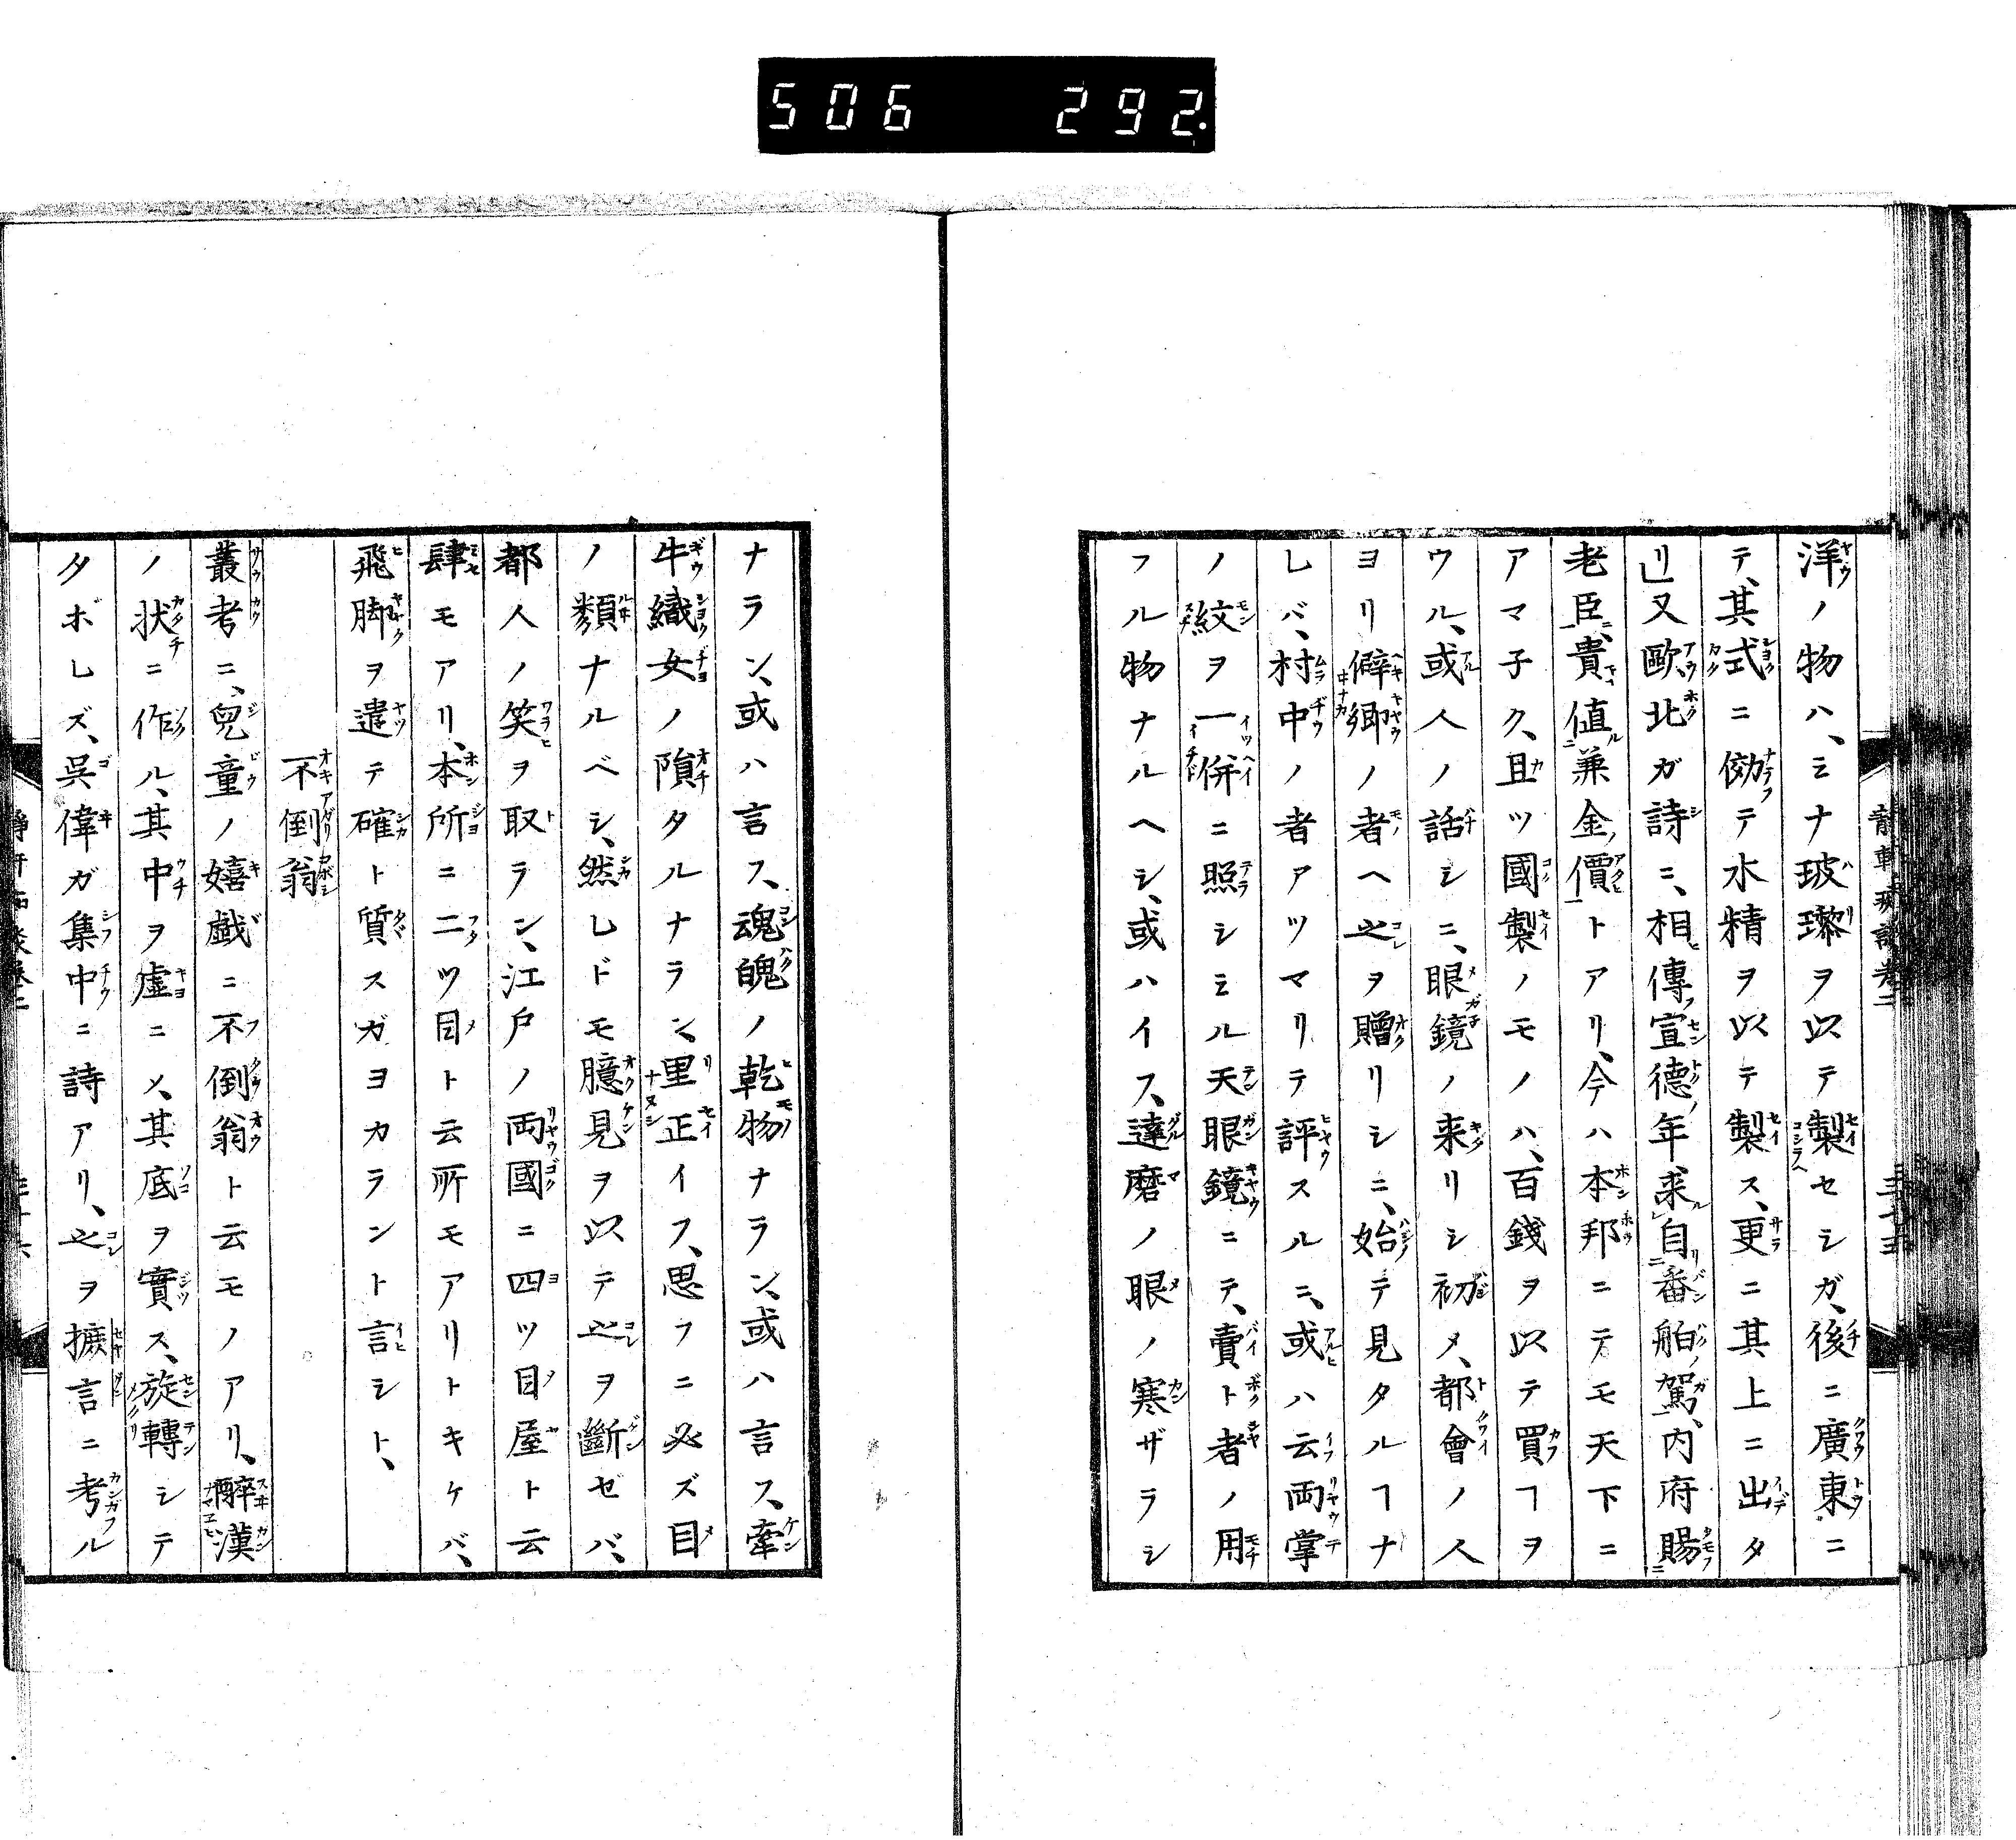 506 292.
洋ノ物ハ、ミナ玻瓈ヲ以テ製セシガ、後ニ廣東ニ
テ、其式ニ傚テ水精ヲ以テ製ス、更ニ其上ニ出タ
リ」又歐北ガ詩ニ、相傳宣德年求自番舶駕、内府賜
老臣、貴値兼金價トアリ、今ハ本邦ニテモ天下ニ
アマ子ク、且ツ國製ノモノハ、百錢ヲ以テ買フヿヲ
ウル、或人ノ話シニ、眼鏡ノ来リシ初メ、都會ノ人
ヨリ僻郷ノ者ヘ之ヲ贈リシニ、始テ見タルヿナ
レバ、村中ノ者アツマリテ評スルニ、或ハ云両掌
ノ紋ヲ一併ニ照シミル天眼鏡ニテ、賣ト者ノ用
フル物ナルヘシ、或ハイス、達磨ノ眼ノ寒ザラシ
ナラン、或ハ言ス、魂魄ノ乾物ナラン、或ハ言ス、牽
牛織女ノ隕タルナラン、里正イフ、思フニ必ズ目
ノ類ナルベシ、然レドモ臆見ヲ以テ之ヲ斷ゼバ、
都人ノ笑ヲ取ラン、江戸ノ両國ニ四ツ目屋ト云
肆モアリ、本所ニ二ツ目ト云所モアリトキケバ、
飛脚ヲ遣テ確ト質スガヨカラント言シト、
不倒翁
叢考ニ、兒童ノ嬉戯ニ不倒翁ト云モノアリ、醉漢
ノ状ニ作ル、其中ヲ虚ニメ、其底ヲ實ス、旋轉シテ
タボレズ、呉偉ガ集中ニ詩アリ、之ヲ摭言ニ考ル